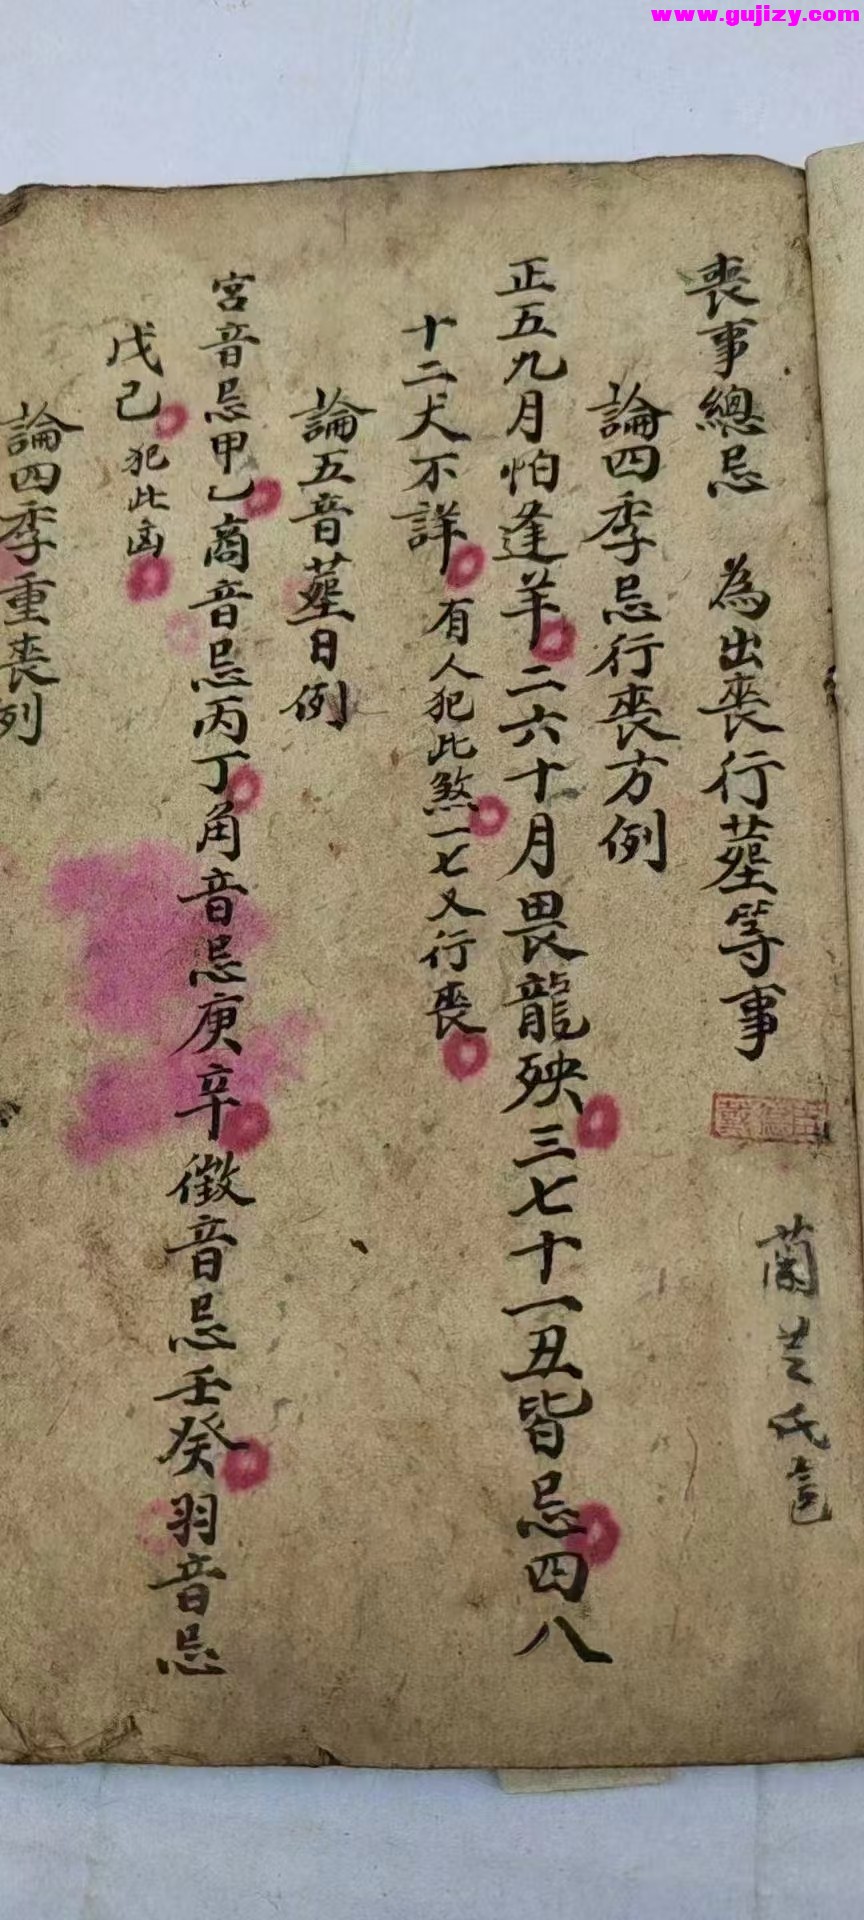 www.gujizy.com
喪事總忌 為出喪行塟等事
論四季忌行喪方例
正五九月怕逢羊二六十月畏龍殃三七十一丑皆忌四八
十二犬不詳 有人犯此煞一七又行喪
論五音塟日例
宮音忌甲乙商音忌丙丁角音忌庚辛徵音忌壬癸羽音忌
戊己 犯此凶
論四季重喪列